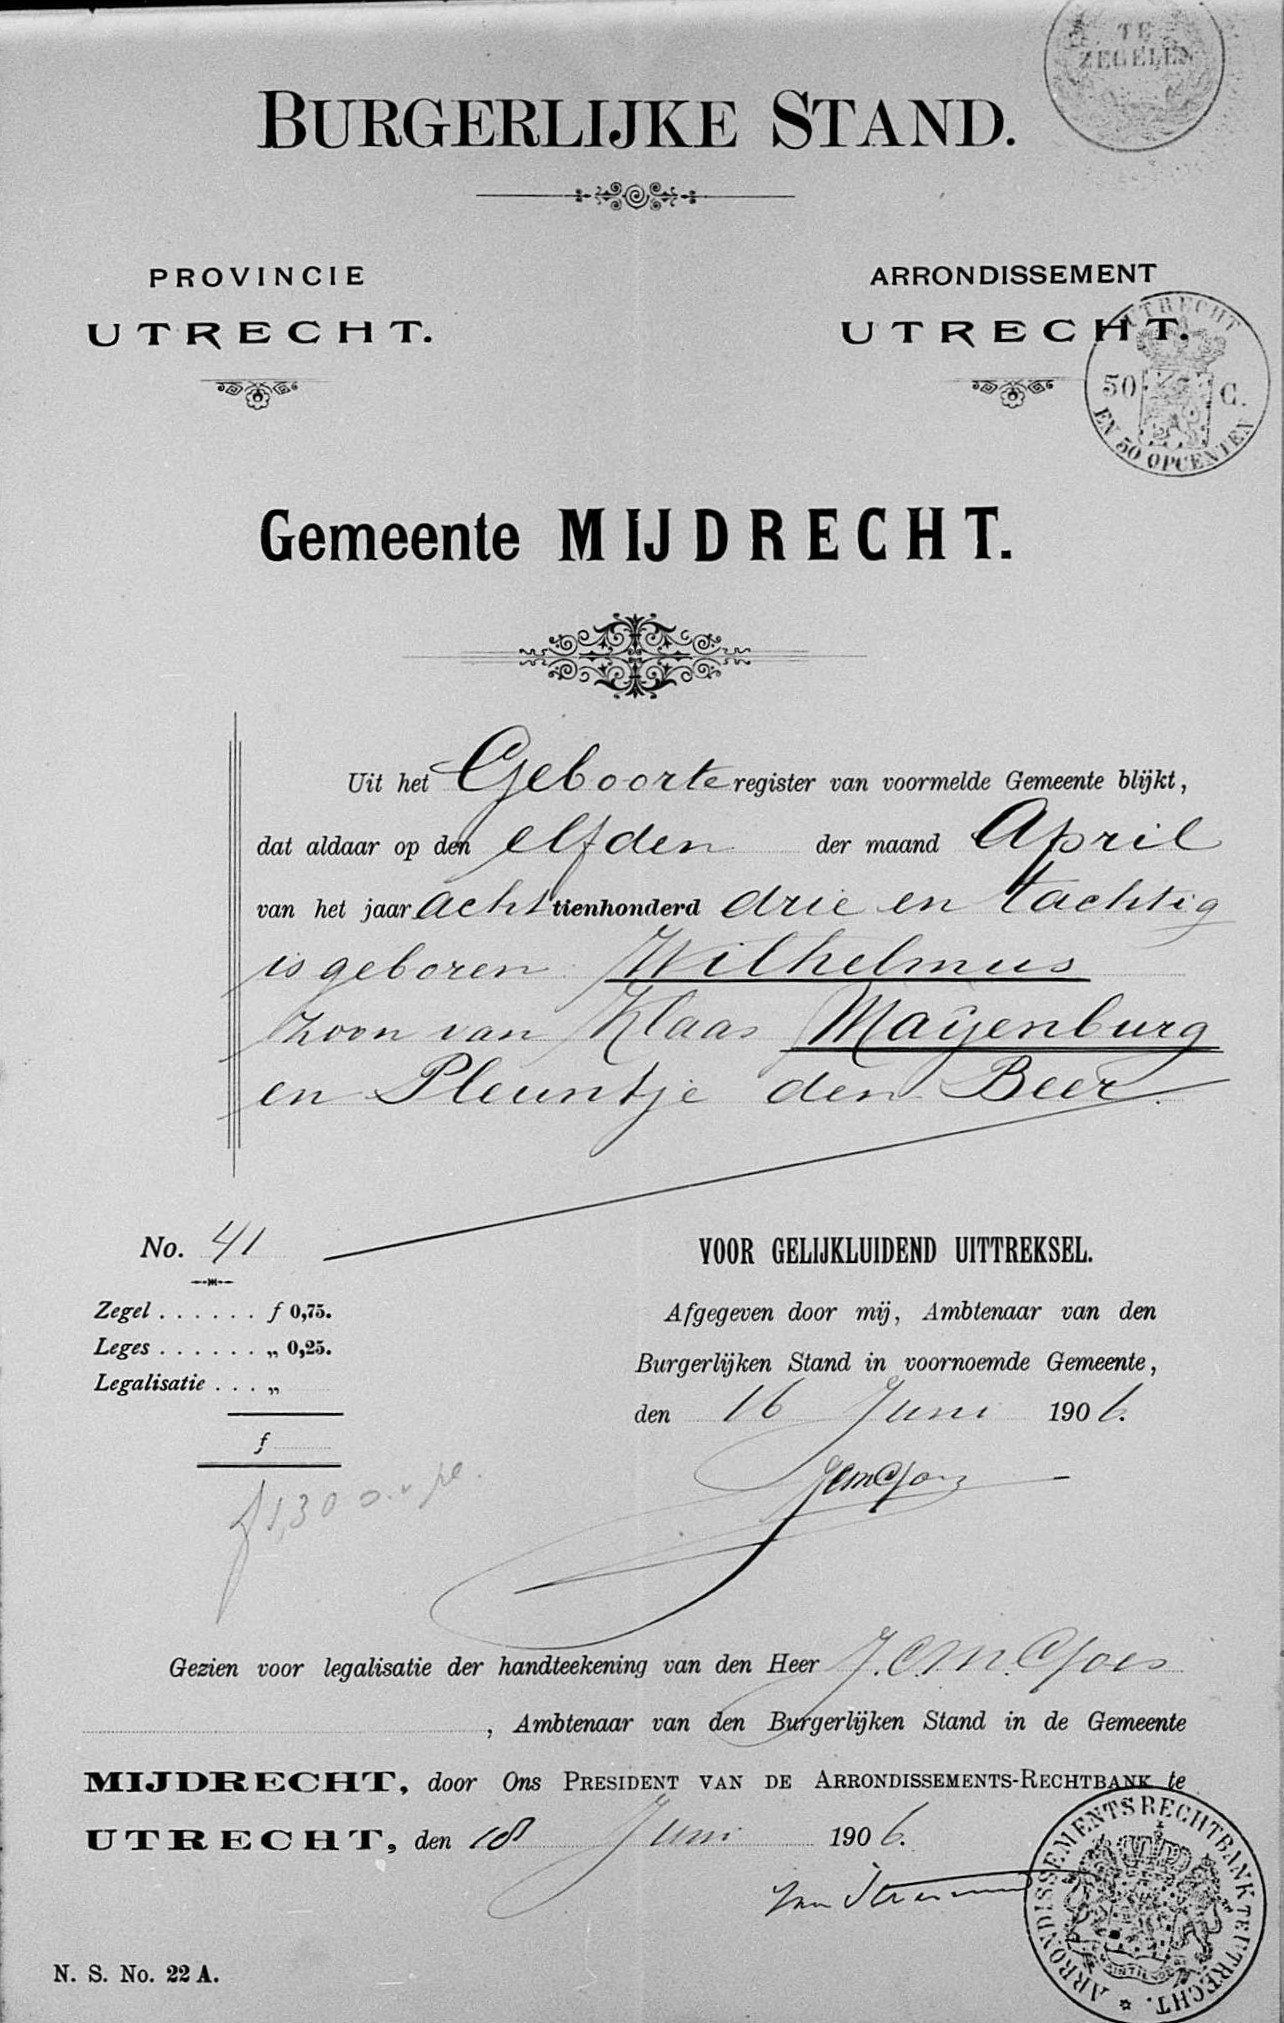 TE
ZEGELEN
BURGERLIJKE STAND.
PROVINCIE
UTRECHT.
ARRONDISSEMENT
UTRECHT.
UTRECHT
50 C.
EN 50 OPCENTEN
Gemeente MIJDRECHT.
Uit het Geboorte register van voormelde Gemeente blijkt,
dat aldaar op den elfden der maand April
van het jaar acht tienhonderd drie en tachtig
is geboren Wilhelmus
zoon van Klaas Maÿenburg
en Pleuntje den Beer.
No. 41
Zegel . . . . . . f 0,75.
Leges . . . . . . „ 0,25.
Legalisatie . . . „
f
f 1,30
VOOR GELIJKLUIDEND UITTREKSEL.
Afgegeven door mij, Ambtenaar van den
Burgerlijken Stand in voornoemde Gemeente,
den 16 Juni 1906.
Gezien voor legalisatie der handteekening van den Heer J.C.M.
, Ambtenaar van den Burgerlijken Stand in de Gemeente
MIJDRECHT, door Ons PRESIDENT VAN DE ARRONDISSEMENTS-RECHTBANK te
UTRECHT, den 18 Juni 1906.
ARRONDISSEMENTSRECHTBANK TE UTRECHT.
N. S. No. 22 A.